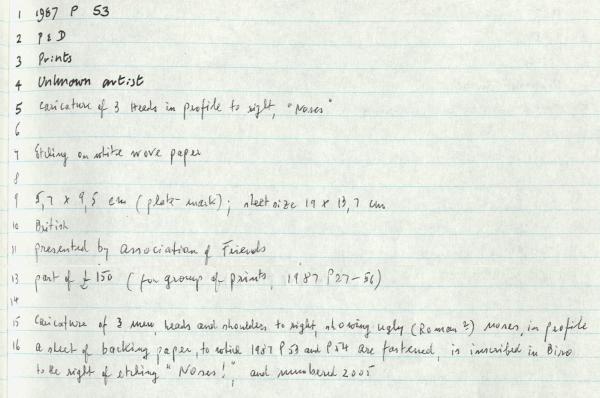 1 1987 P 53
2 P&D
3 Prints
4 Unknown artist
5 Caricature of 3 Heads in profile to right, "Noses"
6
7 Etching on white wove paper
8
9 5,7 x 9,5 cm (plate-mark); sheet size 19 x 13,7 cm
10 British
11 presented by Association of Friends
13 part of £150 (for group of prints, 1987 P27-56)
14
15 Caricature of 3 men, heads and shoulders to right, showing ugly (Roman?) noses, in profile
16 a sheet of backing paper, to which 1987 P53 and P54 are fastened, is inscribed in Biro
to the right of etching "Noses!", and numbered 2005